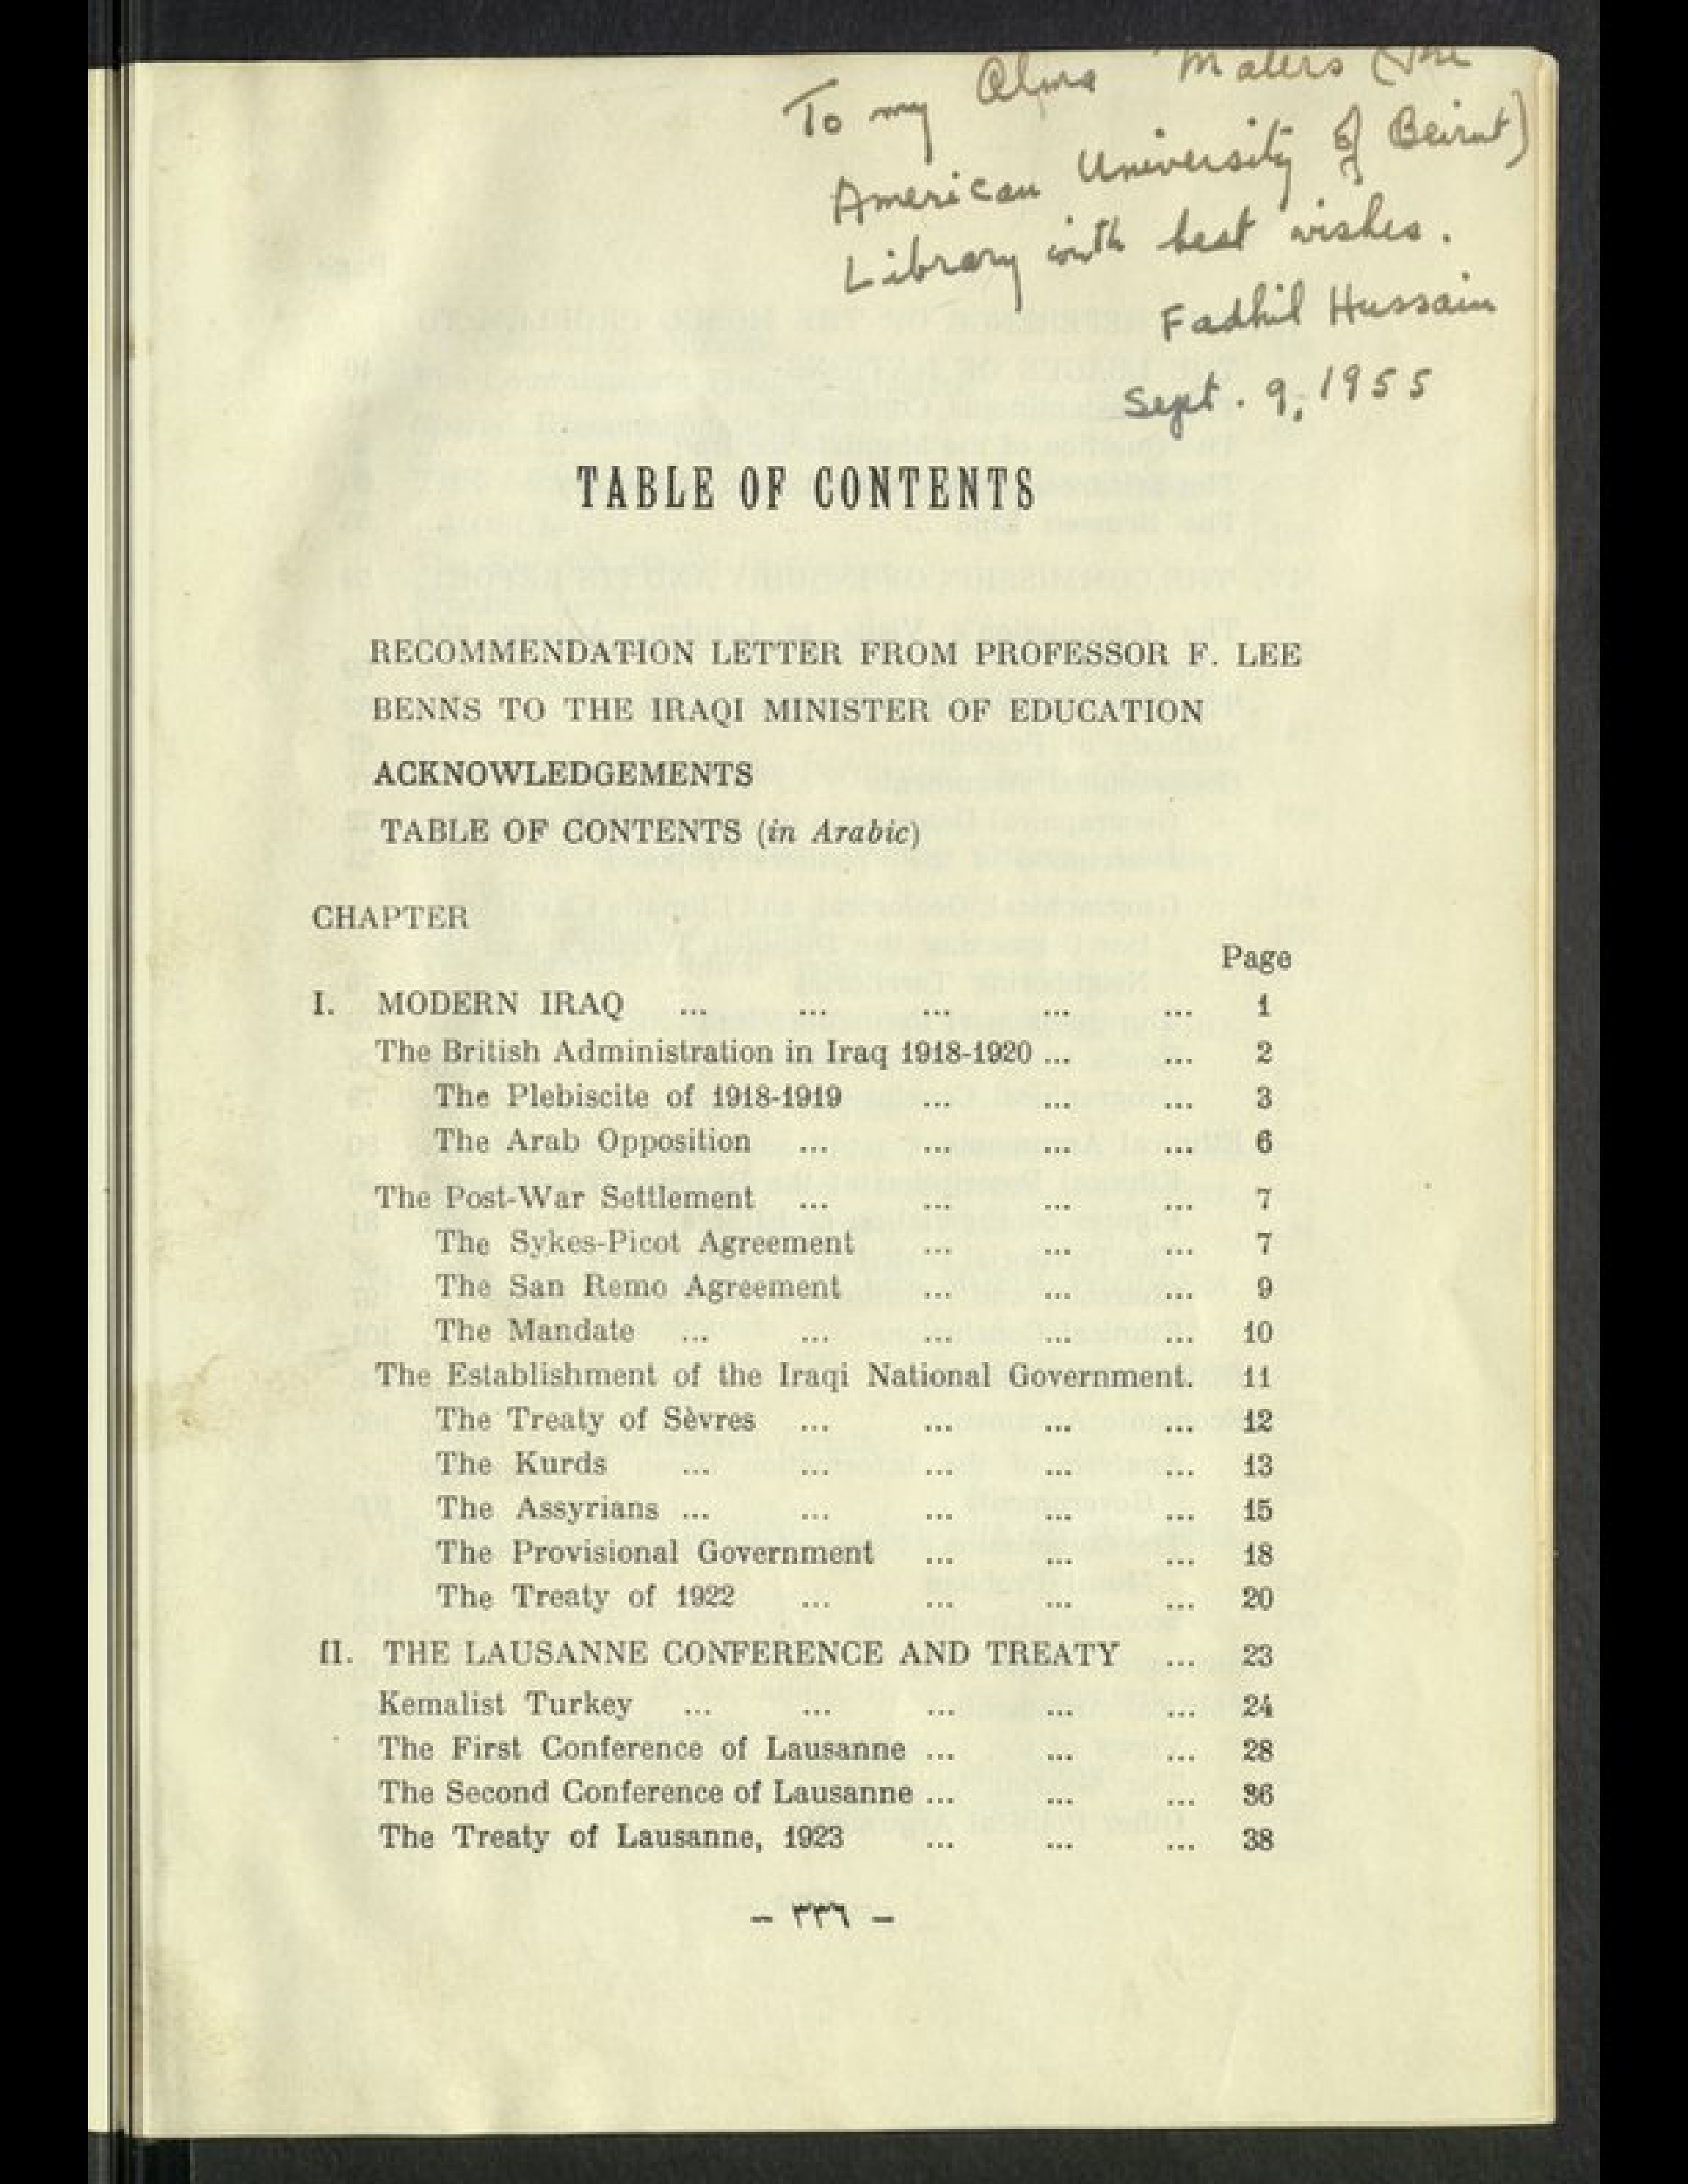 To my Alma Maters (The
American University of Beirut)
Library with best wishes.
Fadhil Hussain
Sept. 9, 1955
TABLE OF CONTENTS
RECOMMENDATION LETTER FROM PROFESSOR F. LEE
BENNS TO THE IRAQI MINISTER OF EDUCATION
ACKNOWLEDGEMENTS
TABLE OF CONTENTS (in Arabic)
CHAPTER
Page
I. MODERN IRAQ ... ... ... ... ... 1
The British Administration in Iraq 1918-1920 ... ... 2
The Plebiscite of 1918-1919 ... ... ... 3
The Arab Opposition ... ... ... ... 6
The Post-War Settlement ... ... ... ... 7
The Sykes-Picot Agreement ... ... ... 7
The San Remo Agreement ... ... ... 9
The Mandate ... ... ... ... ... 10
The Establishment of the Iraqi National Government. 11
The Treaty of Sèvres ... ... ... ... 12
The Kurds ... ... ... ... ... 13
The Assyrians ... ... ... ... ... 15
The Provisional Government ... ... ... 18
The Treaty of 1922 ... ... ... ... 20
II. THE LAUSANNE CONFERENCE AND TREATY ... 23
Kemalist Turkey ... ... ... ... ... 24
The First Conference of Lausanne ... ... ... 28
The Second Conference of Lausanne ... ... ... 36
The Treaty of Lausanne, 1923 ... ... ... 38
– ٣٣٦ –